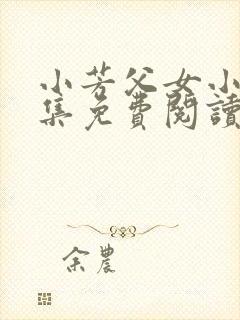 小芳父女小
集免費閱讀
余農